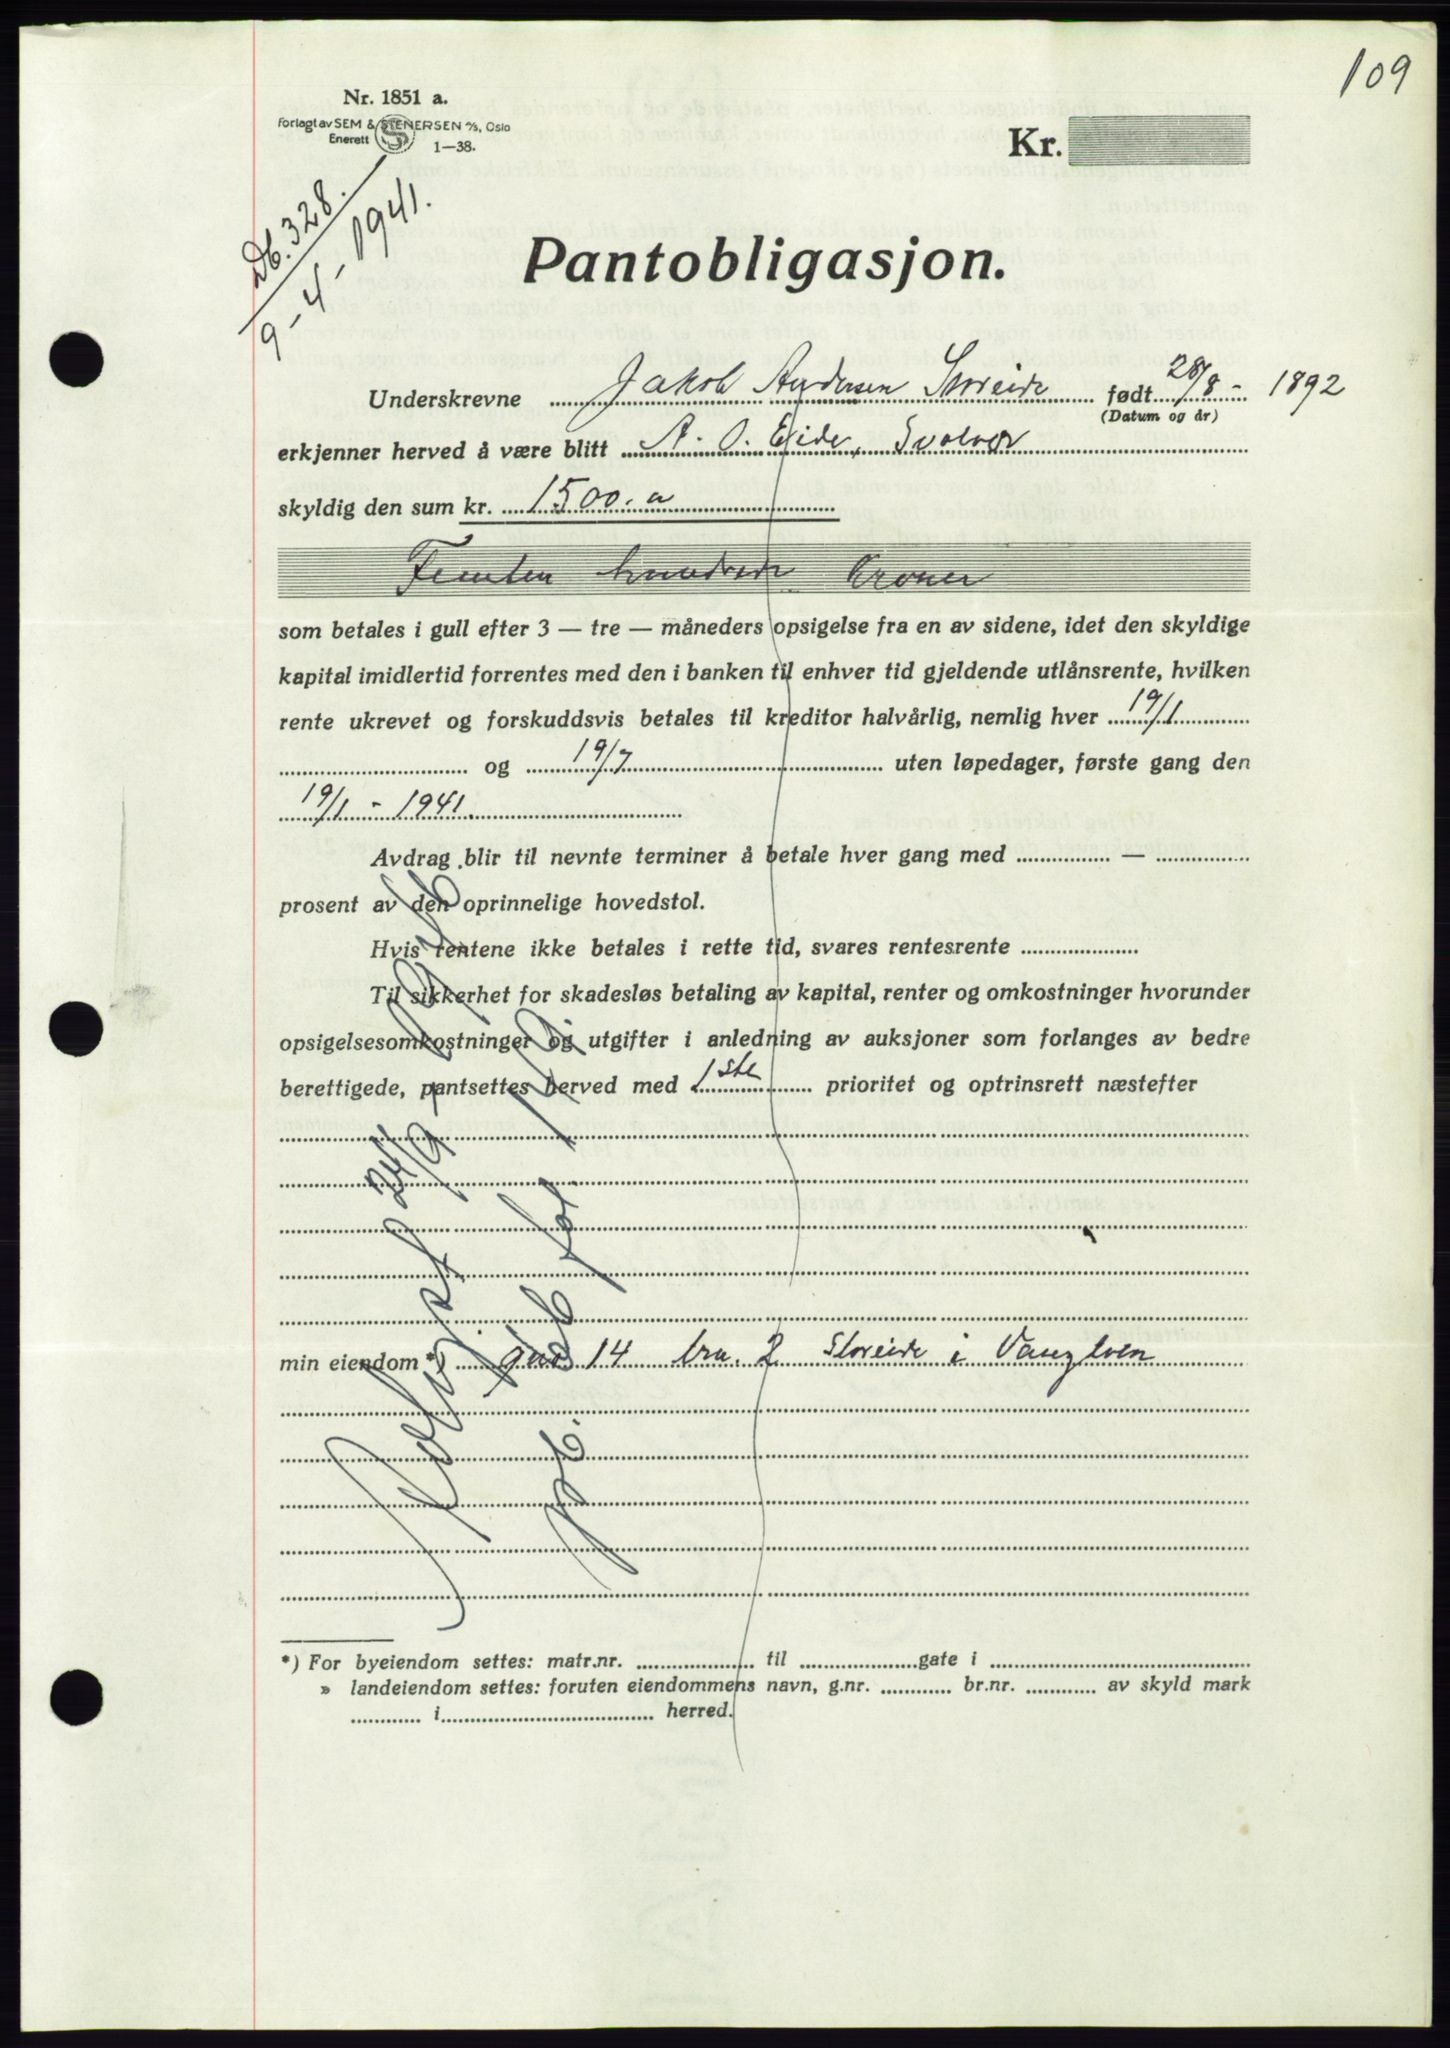 109
Nr. 1851 a.
Forlagt av SEM & STENERSEN A/S, Oslo
Enerett S 1—38.
Kr.
Db. 328.
9 - 4 - 1941.
Pantobligasjon.
Underskrevne Jakob Andersen Storeide født 28/8 - 1892
(Datum og år)
erkjenner herved å være blitt A. O. Eide, Svolvær
skyldig den sum kr. 1500.-
Femten hundrede Kroner
som betales i gull efter 3 — tre — måneders opsigelse fra en av sidene, idet den skyldige
kapital imidlertid forrentes med den i banken til enhver tid gjeldende utlånsrente, hvilken
rente ukrevet og forskuddsvis betales til kreditor halvårlig, nemlig hver 19/1
og 19/7 uten løpedager, første gang den
19/1 - 1941.
Avdrag blir til nevnte terminer å betale hver gang med —
prosent av den oprinnelige hovedstol.
Hvis rentene ikke betales i rette tid, svares rentesrente
Til sikkerhet for skadesløs betaling av kapital, renter og omkostninger hvorunder
opsigelsesomkostninger og utgifter i anledning av auksjoner som forlanges av bedre
berettigede, pantsettes herved med 1ste prioritet og optrinsrett næstefter
min eiendom *) gno 14 bru. 2 Storeide i
Avlyst 24/9 - 1946
*) For byeiendom settes: matr.nr. til gate i
» landeiendom settes: foruten eiendommens navn, g.nr. br.nr. av skyld mark
i herred.